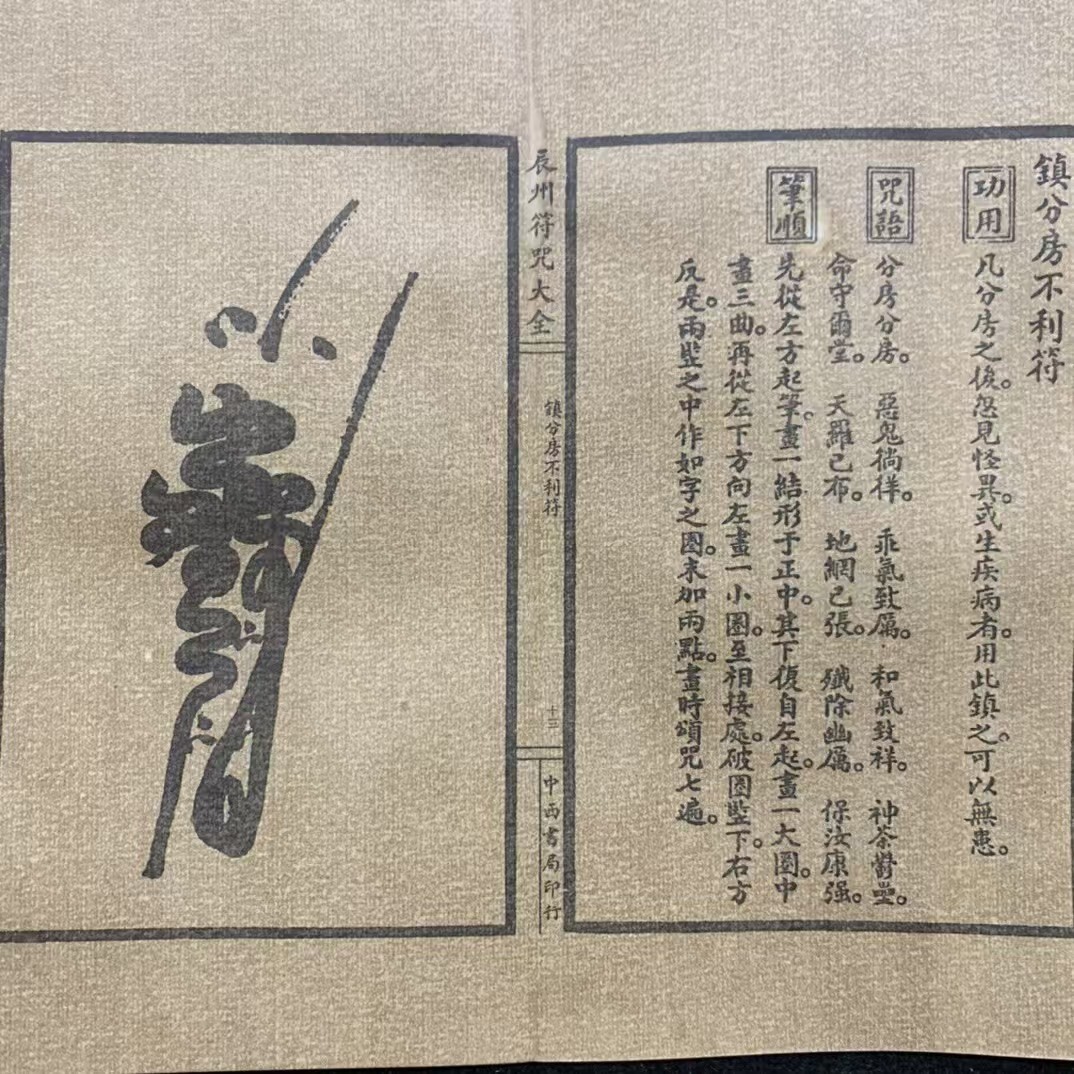 鎮分房不利符
功用
凡分房之後。忽見怪異。或生疾病者。用此鎮之。可以無患。
咒語
分房分房。 惡鬼徜徉。 乖氣致厲。 和氣致祥。 神荼鬱壘。
命守爾堂。 天羅已布。 地網已張。 殲除幽厲。 保汝康强。
筆順
先從左方起筆。畫一結形于正中。其下復自左起。畫一大圈。中
畫三曲。再從左下方向左畫一小圈。至相接處。破圈豎下。右方
反是。兩豎之中作如字之圈。末加兩點。畫時頌咒七遍。
辰州符咒大全
鎮分房不利符
十三
中西書局印行